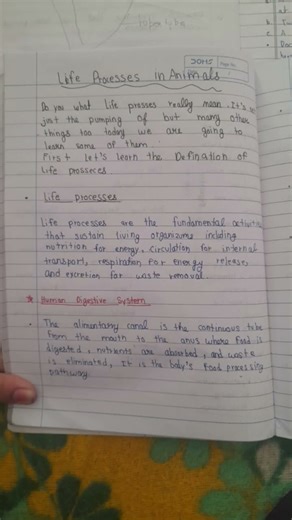 Life Processes in Animals
Do you what Life prosses really mean. It's
just the pumping of but many other
things too today we are going to
learn some of them
First let's learn the Defination of
Life prosseces
Life processes
Life processes are the fundamental activities
that sustain living organizums including
nutrition for energy, circulation for internal
transport, respiration for energy release,
and excretion for waste removal.
Human Digestive System
The alimentary canal is the continuous tube
from the mouth to the anus where food is
digested, nutrients are absorbed, and waste
is eliminated, It is the body's food processing
pathway